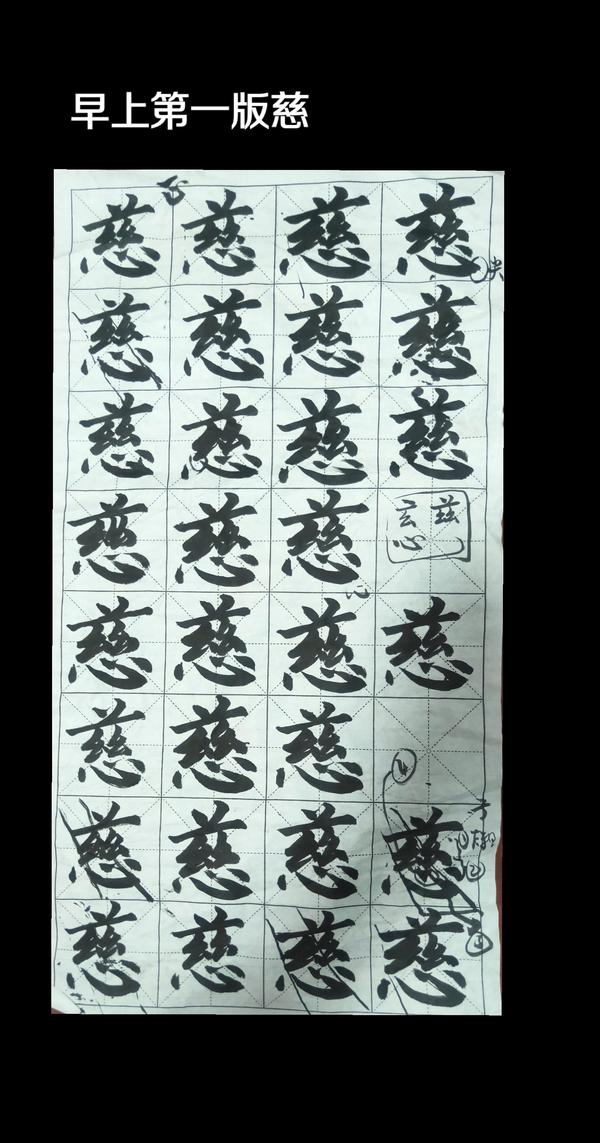 早上第一版慈
慈 慈 慈 慈
慈 慈 慈 慈
慈 慈 慈 慈
慈 慈 慈 玄 兹 心
心
慈 慈 慈 慈
慈 慈 慈
慈 慈 慈 慈
慈 慈 慈 慈